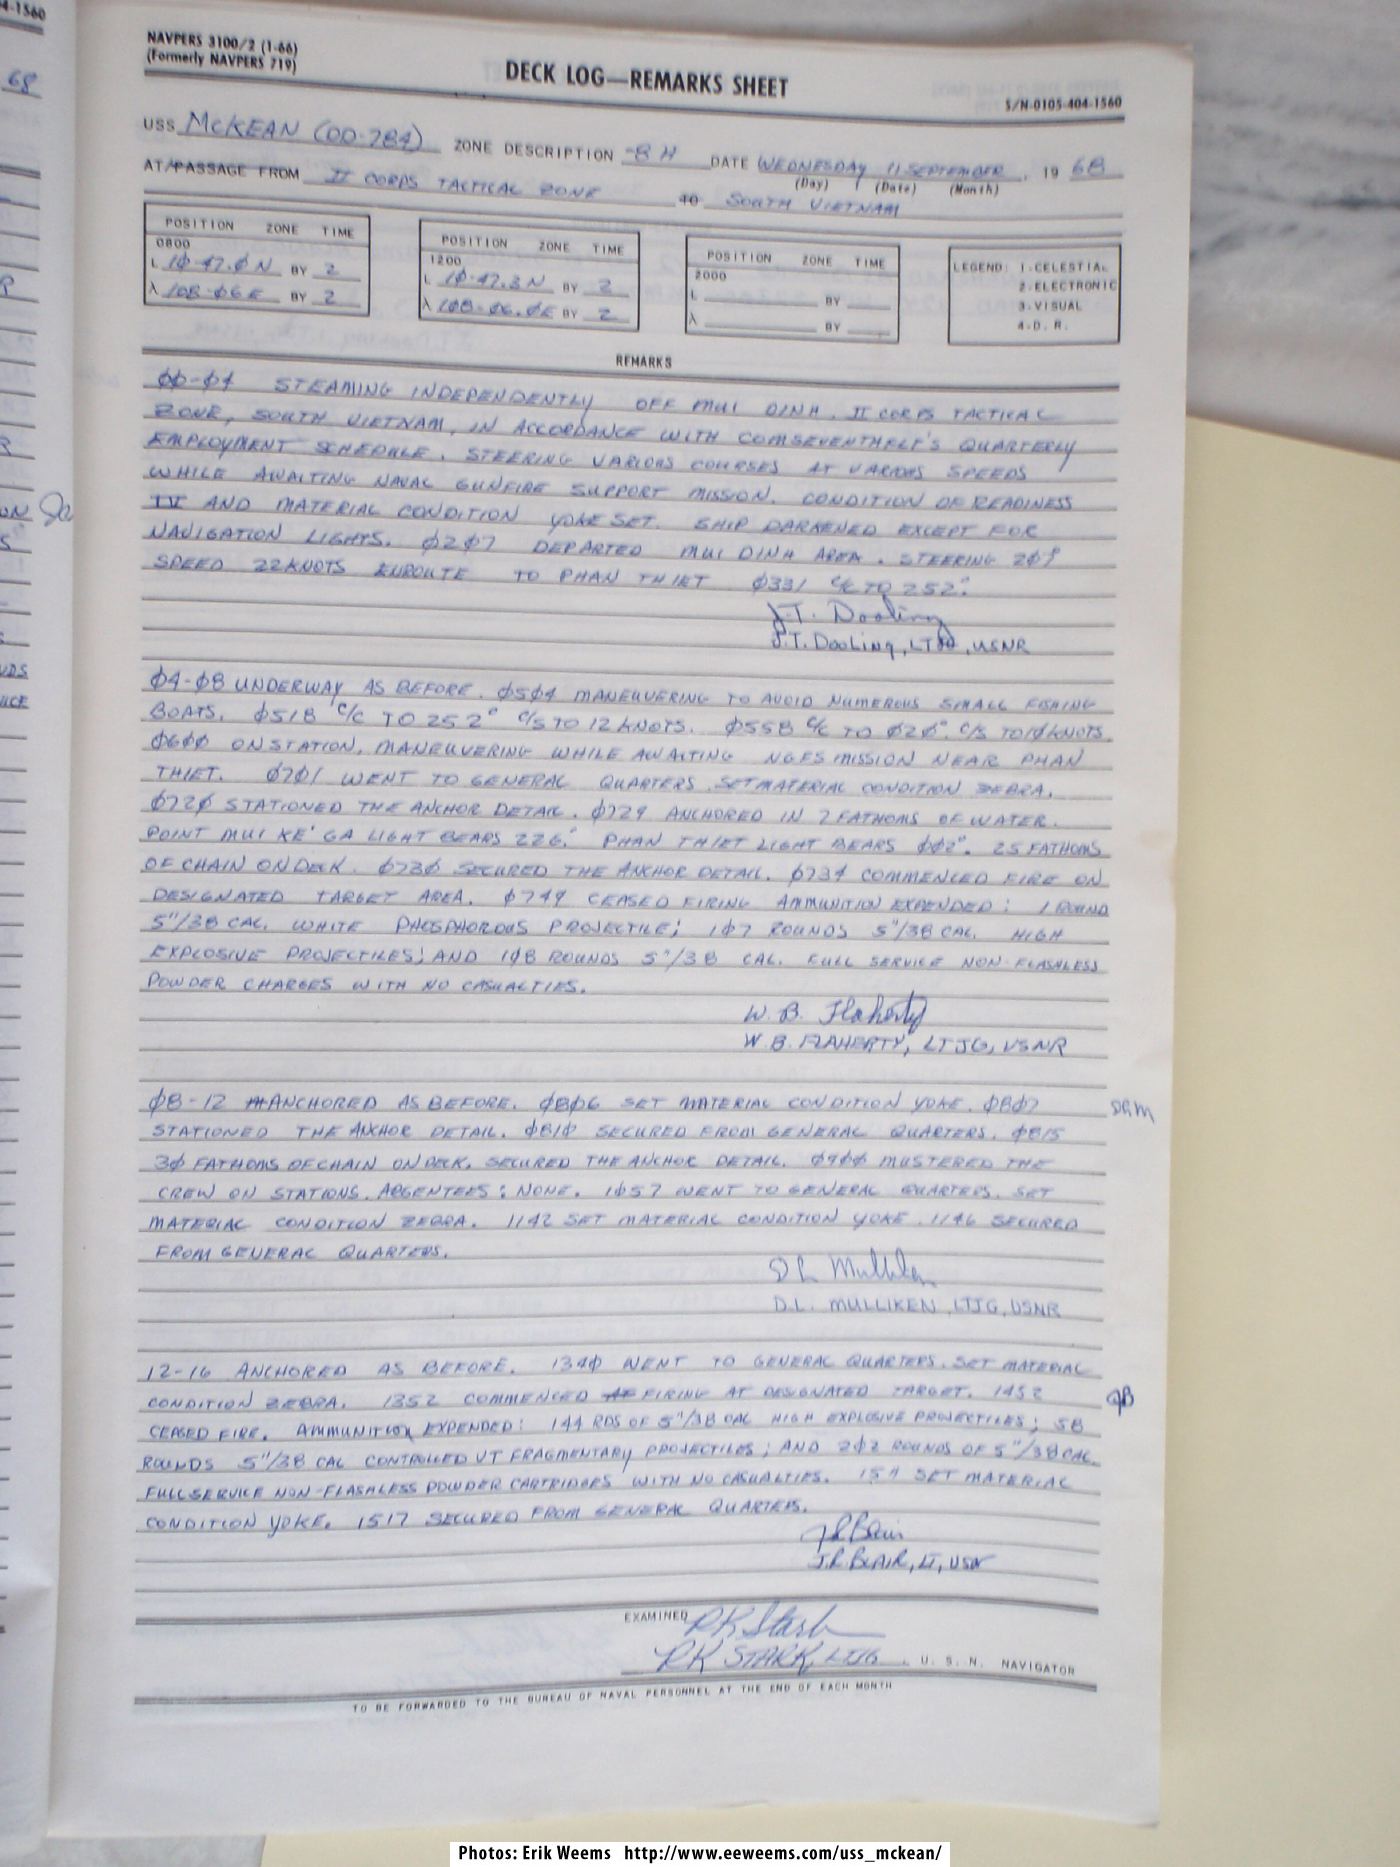 4-1560
68
NAVPERS 3100/2 (1-66)
(Formerly NAVPERS 719)
DECK LOG—REMARKS SHEET
S/N-0105-404-1560
USS McKEAN (DD-784) ZONE DESCRIPTION -8 H DATE WEDNESDAY 11 SEPTEMBER, 19 68
(Day) (Date) (Month)
AT/PASSAGE FROM II CORPS TACTICAL ZONE TO SOUTH VIETNAM
POSITION ZONE TIME
0800
L 1Ø-47.Ø N BY 2
λ 108-Ø6 E BY 2
POSITION ZONE TIME
1200
L 1Ø-47.3 N BY 2
λ 1Ø8-Ø6.ØE BY 2
POSITION ZONE TIME
2000
L BY
λ BY
LEGEND: 1-CELESTIAL
2-ELECTRONIC
3-VISUAL
4-D. R.
REMARKS
ØØ-Ø4 STEAMING INDEPENDENTLY OFF MUI DINH, II CORPS TACTICAL
ZONE, SOUTH VIETNAM, IN ACCORDANCE WITH COMSEVENTHFLT'S QUARTERLY
EMPLOYMENT SCHEDULE. STEERING VARIOUS COURSES AT VARIOUS SPEEDS
WHILE AWAITING NAVAL GUNFIRE SUPPORT MISSION. CONDITION OF READINESS
IV AND MATERIAL CONDITION YOKE SET. SHIP DARKENED EXCEPT FOR
NAVIGATION LIGHTS. Ø2Ø7 DEPARTED MUI DINH AREA. STEERING
SPEED 22 KNOTS ENROUTE TO PHAN THIET Ø331 C/C TO 252°.
J.T. Dooling
J.T. Dooling, LTJG, USNR
Ø4-Ø8 UNDERWAY AS BEFORE. Ø5Ø4 MANEUVERING TO AVOID NUMEROUS SMALL FISHING
BOATS. Ø518 C/C TO 252° C/S TO 12 KNOTS. Ø558 C/C TO Ø2Ø°. C/S TO 1Ø KNOTS.
Ø6ØØ ON STATION, MANEUVERING WHILE AWAITING NGFS MISSION NEAR PHAN
THIET. Ø7Ø1 WENT TO GENERAL QUARTERS. SET MATERIAL CONDITION ZEBRA.
Ø72Ø STATIONED THE ANCHOR DETAIL. Ø729 ANCHORED IN 7 FATHOMS OF WATER.
POINT MUI KE' GA LIGHT BEARS 226°. PHAN THIET LIGHT BEARS ØØ2°. 25 FATHOMS
OF CHAIN ON DECK. Ø73Ø SECURED THE ANCHOR DETAIL. Ø734 COMMENCED FIRE ON
DESIGNATED TARGET AREA. Ø749 CEASED FIRING AMMUNITION EXPENDED: 1 ROUND
5"/38 CAL. WHITE PHOSPHOROUS PROJECTILE; 1Ø7 ROUNDS 5"/38 CAL. HIGH
EXPLOSIVE PROJECTILES; AND 1Ø8 ROUNDS 5"/38 CAL. FULL SERVICE NON-FLASHLESS
POWDER CHARGES WITH NO CASUALTIES.
W. B. Flaherty
W. B. FLAHERTY, LTJG, USNR
Ø8-12 ANCHORED AS BEFORE. Ø8Ø6 SET MATERIAL CONDITION YOKE. Ø8Ø7
STATIONED THE ANCHOR DETAIL. Ø81Ø SECURED FROM GENERAL QUARTERS. Ø815
3Ø FATHOMS OF CHAIN ON DECK, SECURED THE ANCHOR DETAIL. Ø9ØØ MUSTERED THE
CREW ON STATIONS. ABSENTEES: NONE. 1Ø57 WENT TO GENERAL QUARTERS. SET
MATERIAL CONDITION ZEBRA. 1142 SET MATERIAL CONDITION YOKE. 1146 SECURED
FROM GENERAL QUARTERS.
D L Mulliken
D.L. MULLIKEN, LTJG, USNR
12-16 ANCHORED AS BEFORE. 134Ø WENT TO GENERAL QUARTERS. SET MATERIAL
CONDITION ZEBRA. 1352 COMMENCED FIRING AT DESIGNATED TARGET. 1452
CEASED FIRE. AMMUNITION EXPENDED: 144 RDS OF 5"/38 CAL HIGH EXPLOSIVE PROJECTILES; 58
ROUNDS 5"/38 CAL CONTROLLED VT FRAGMENTARY PROJECTILES; AND 2Ø2 ROUNDS OF 5"/38 CAL.
FULL SERVICE NON-FLASHLESS POWDER CARTRIDGES WITH NO CASUALTIES. SET MATERIAL
CONDITION YOKE. 1517 SECURED FROM GENERAL QUARTERS.
J R Blair
J.R. BLAIR, LT, USN
EXAMINED
RK Stark
RK STARK, LTJG, U. S. N. NAVIGATOR
TO BE FORWARDED TO THE BUREAU OF NAVAL PERSONNEL AT THE END OF EACH MONTH
Photos: Erik Weems http://www.eeweems.com/uss_mckean/